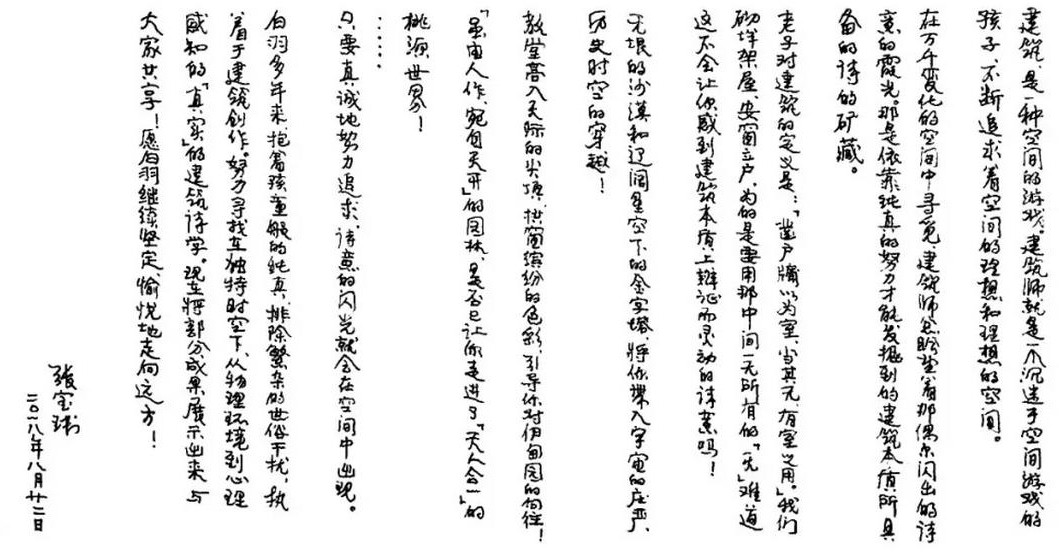 建筑，是一种空间的游戏。建筑师就是一个沉迷于空间游戏的
孩子，不断追求着空间的理想和理想的空间。
在万千变化的空间中寻觅，建筑师总盼望着那偶尔闪出的诗
意的霞光。那是依靠纯真的努力才能发掘到的建筑本质所具
备的诗的矿藏。
老子对建筑的定义是：“凿户牖以为室，当其无，有室之用。”我们
砌垟架屋，安窗立户，为的是要用那中间一无所有的“无”，难道
这不会让你感到建筑本质上辩证而灵动的诗意吗！
无垠的沙漠和辽阔星空下的金字塔，将你带入宇宙的庄严、
历史时空的穿越！
教堂高入天际的尖顶，拱窗缤纷的色彩，引导你对伊甸园的向往！
“虽由人作，宛自天开”的园林，是否已让你走进了“天人合一”的
桃源世界！
……
只要真诚地努力追求，诗意的闪光就会在空间中出现。
白羽多年来，抱着孩童般的纯真，排除繁杂的世俗干扰，执
着于建筑创作。努力寻找在独特时空下，从物理环境到心理
感知的“真实”的建筑诗学。现在将部分成果展示出来与
大家共享！愿白羽继续坚定、愉悦地走向远方！
张宝球
二〇一八年八月廿二日